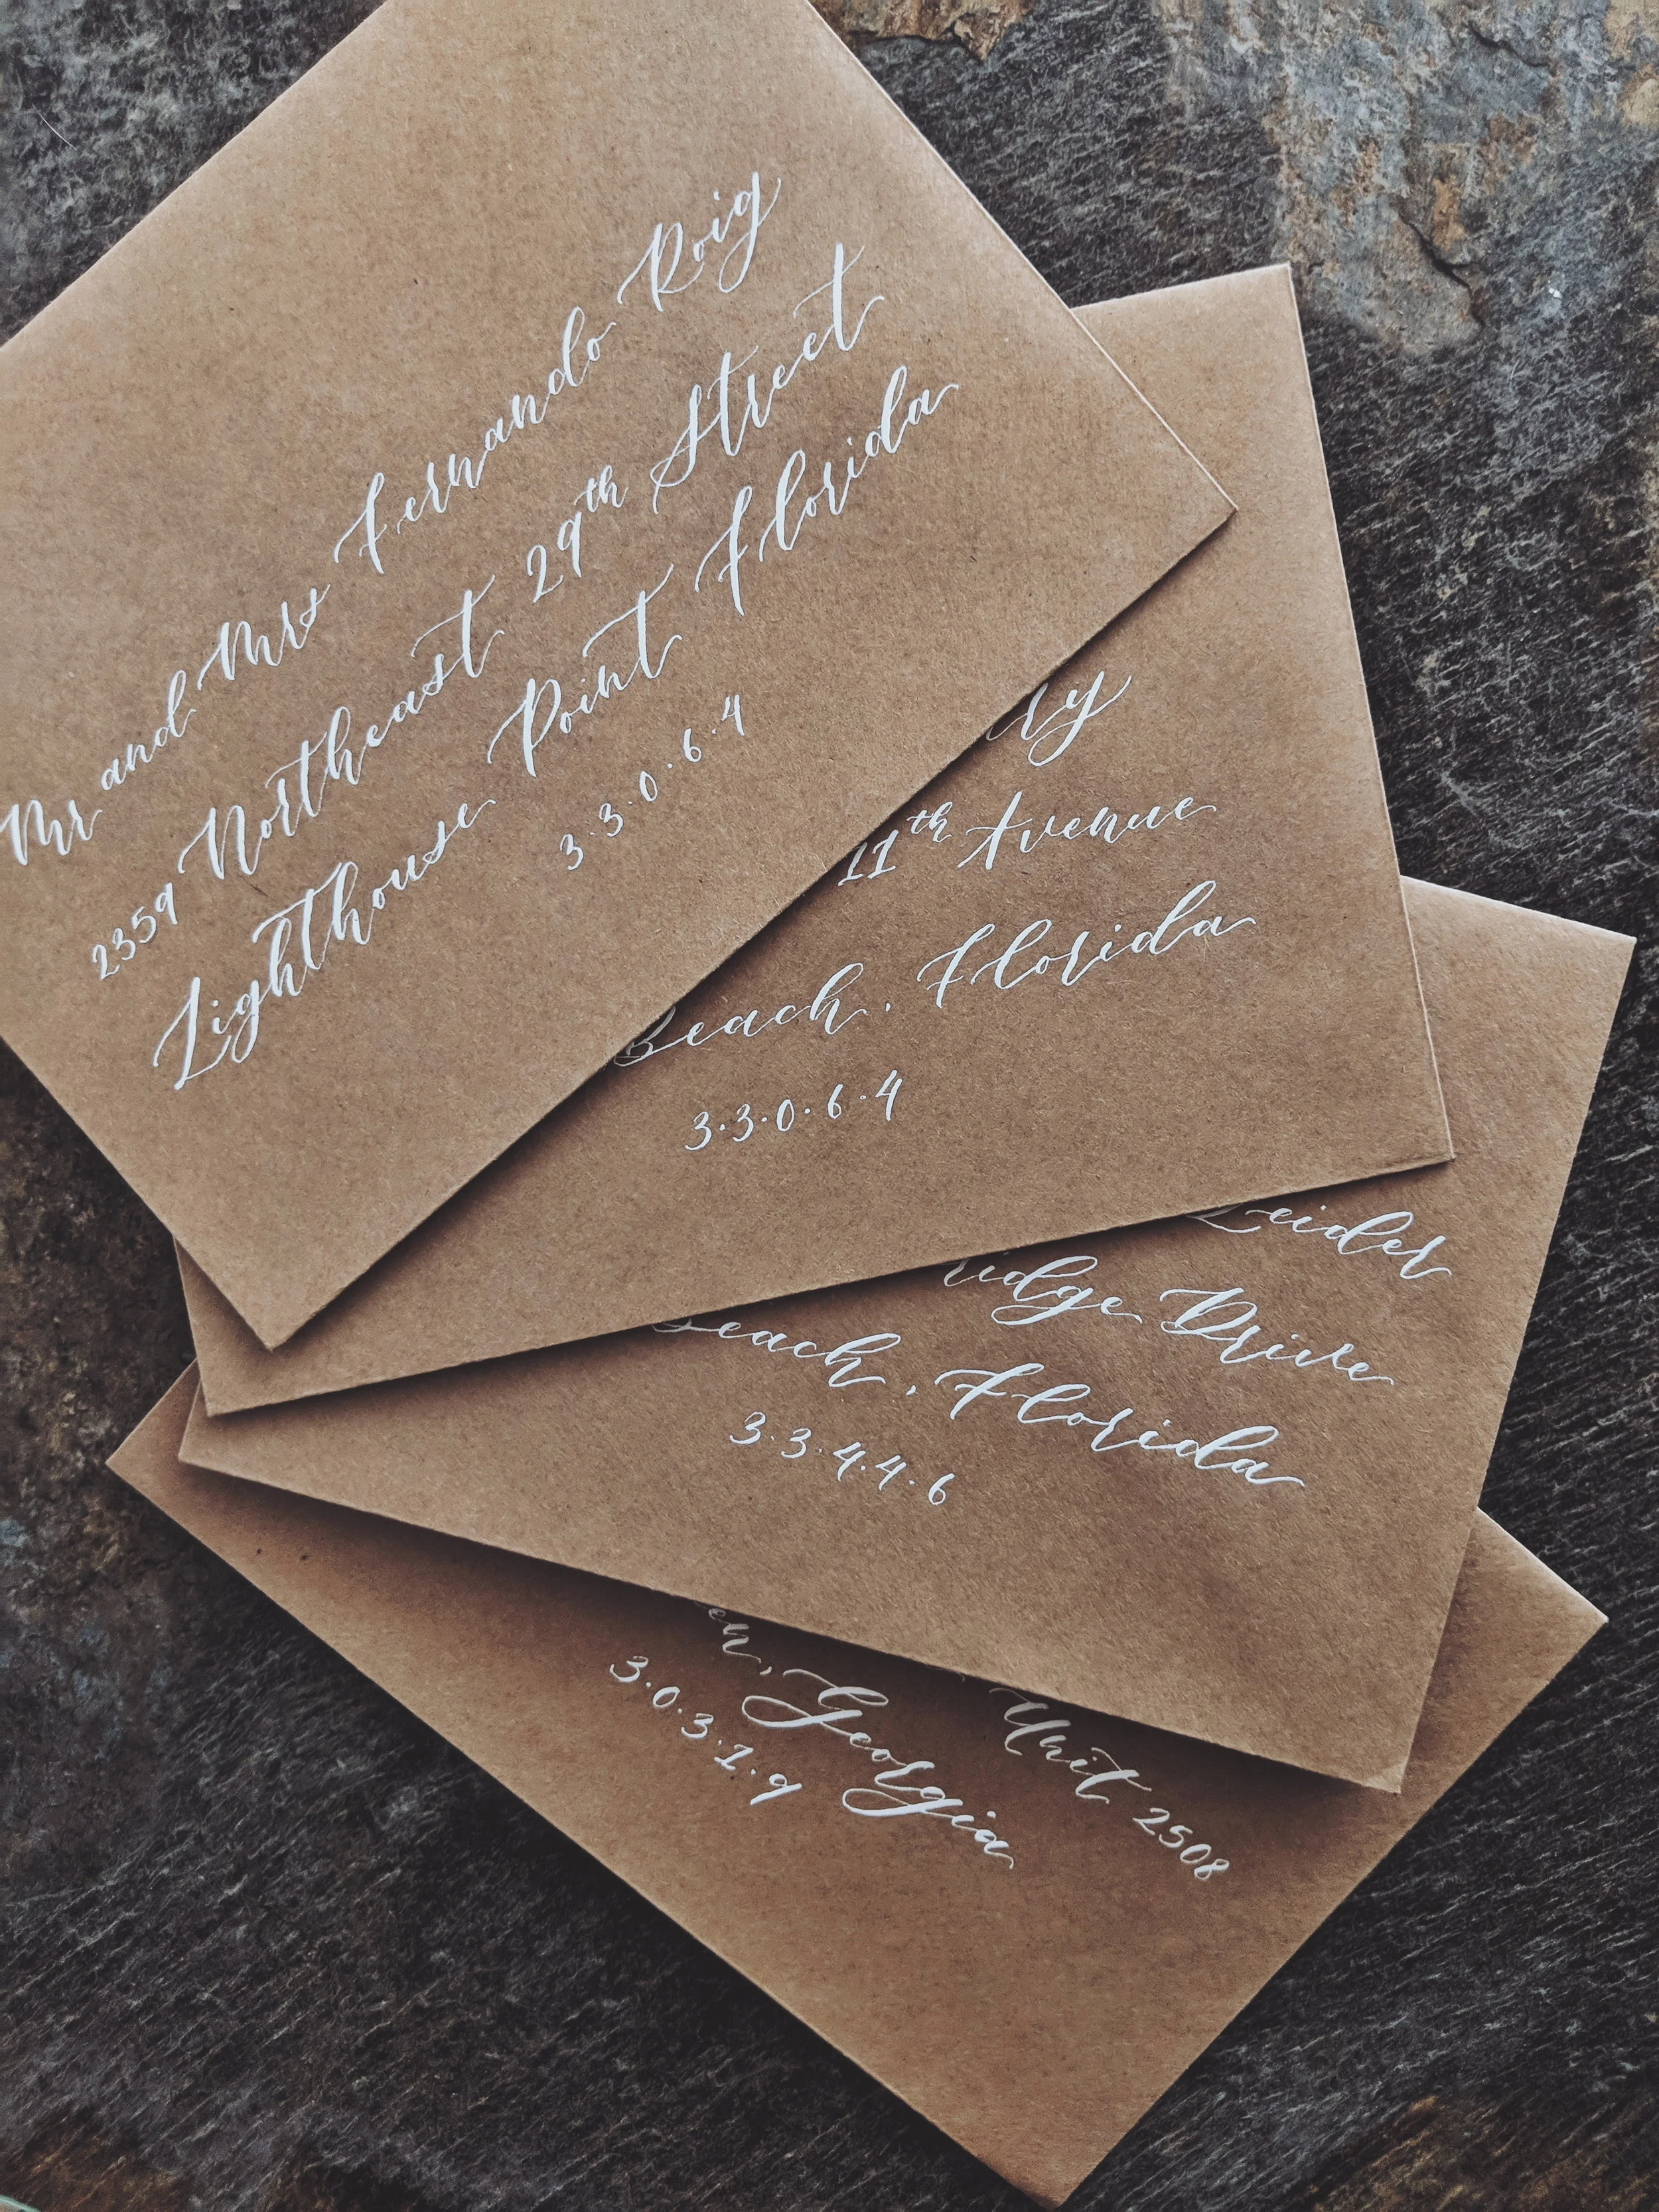 Mr and Mrs Fernando Roig
2359 Northeast 29th Street
Lighthouse Point Florida
3·3·0·6·4
11th Avenue
Beach, Florida
3·3·0·6·4
Leider
Drive
Beach, Florida
3·3·4·4·6
Unit 2508
Georgia
3·0·3·1·9